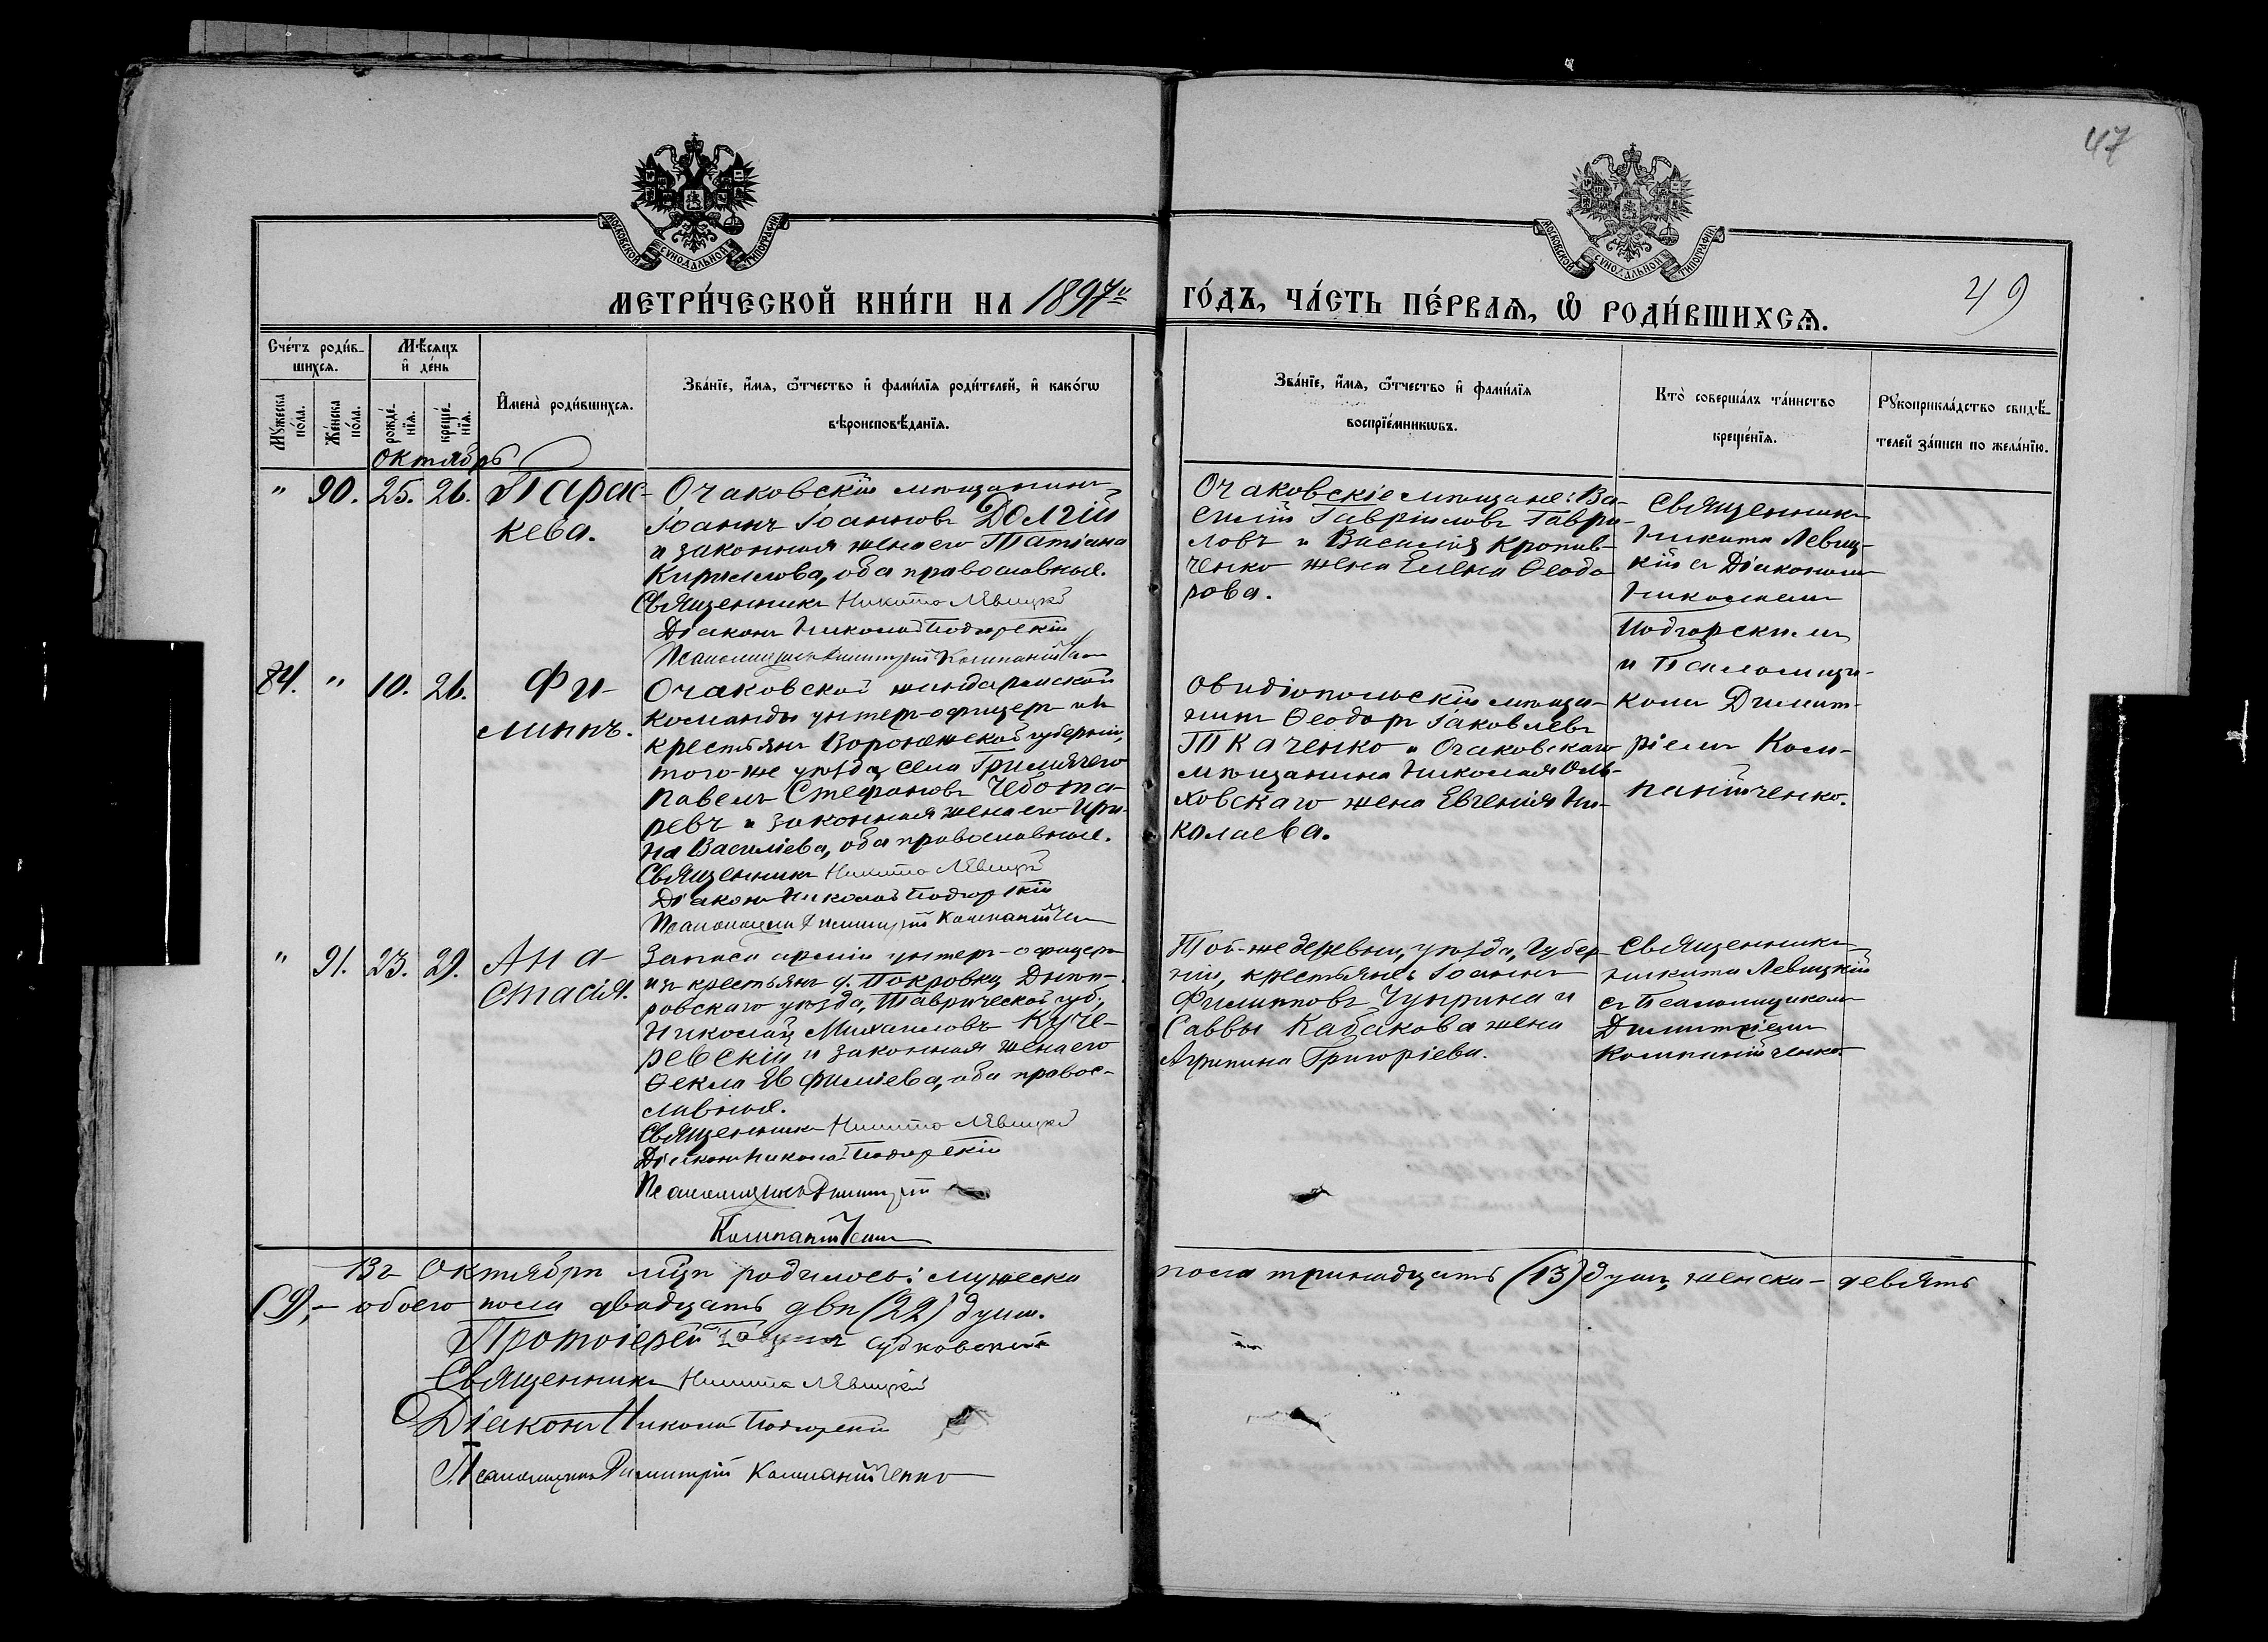 47
МОСКОВСКОЙ СУНОДАЛЬНОЙ ТИПОГРАФІИ
МОСКОВСКОЙ СУНОДАЛЬНОЙ ТИПОГРАФІИ
МЕТРИ́ЧЕСКОЙ КНИ́ГИ НА 1897й ГО́ДЪ, ЧА́СТЬ ПЕ́РВАѦ, Ѡ҆ РОДИ́ВШИХСѦ.
49
Сче́тъ роди́в-
шихсѧ.
Мꙋ́жеска по́ла.
Же́нска по́ла.
Мѣ́сѧцъ
и҆ де́нь
рожде́-
нїѧ.
креще́-
нїѧ.
И҆мена̀ роди́вшихсѧ.
Зва́нїе, и҆́мѧ, ѻ҆́тчество и҆ фами́лїѧ роди́телей, и҆ како́гѡ
вѣроисповѣ́данїѧ.
Зва́нїе, и҆́мѧ, ѻ҆́тчество и҆ фами́лїѧ
воспрїе́мникѡвъ.
Кто̀ соверша́лъ та́инство
креще́нїѧ.
Рꙋкоприкла́дство свидѣ́-
телей за́писи по жела́нїю.
Октябрь
" 90. 25. 26. Парас-
кева.
Очаковскій мѣщанинъ
Іоаннъ Іоанновъ Долгій
и законная жена его Татіана
Кириллова, оба православные.
Священникъ Никита Левицкій
Діаконъ Николай Подгорскій
Псаломщикъ Димитрій Компанійченко
Очаковскіе мѣщане: Ва-
силій Гавріиловъ Гаври-
ловъ и Василія Кропив-
ченко жена Елена Ѳеодо-
рова.
Священникъ
Никита Левиц-
кій съ Діакономъ
Николаемъ
Подгорскимъ
и Псаломщи-
комъ Димит-
ріемъ Ком-
панійченко.
84. " 10. 26. Фи-
липпъ.
Очаковской жандармской
команды унтер-офицеръ изъ
крестьянъ Воронежской губерніи,
того-же уѣзда, села Гремячего
Павелъ Стефановъ Чебота-
ревъ и законная жена его Ири-
на Василіева, оба православные.
Священникъ Никита Левицкій
Діаконъ Николай Подгорскій
Псаломщикъ Димитрій Компанійченко
Овидіопольскій мѣща-
нинъ Ѳеодоръ Іаковлевъ
Ткаченко и Очаковскаго
мѣщанина Николая Оль-
ховскаго жена Евгенія Ни-
колаева.
" 91. 23. 29. Ана-
стасія.
Запаса арміи унтер-офицеръ
изъ крестьянъ д. Покровки, Днѣп-
ровскаго уѣзда, Таврической губ.,
Николай Михаиловъ Куче-
ревскій и законная жена его
Ѳекла Евфиміева, оба правос-
лавные.
Священникъ Никита Левицкій
Діаконъ Николай Подгорскій
Псаломщикъ Димитрій
Компанійченко
Той-же деревни, уѣзда, губер-
ніи, крестьяне: Іоаннъ
Филипповъ Чуприна и
Саввы Кабакова жена
Агрипина Григоріева.
Священникъ
Никита Левицкій
съ Псаломщикомъ
Димитріемъ
Компанійченко
Въ Октябрѣ мцѣ родилось: мужеска пола тринадцать (13) душъ, женска – девять
(9), – обоего пола двадцать двѣ (22) душ.
Протоіерей Судковскій
Священникъ Никита Левицкій
Діаконъ Николай Подгорскій
Псаломщикъ Димитрій Компанійченко